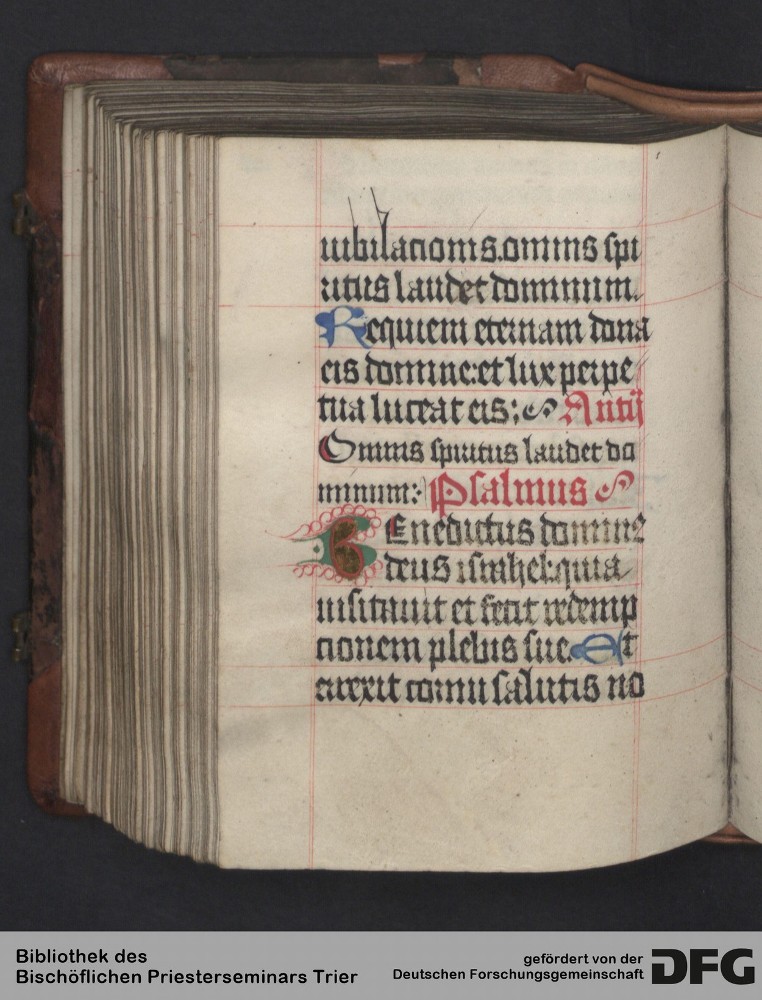 iubilacionis.omnis spi
ritus laudet dominum.
Requiem eternam dona
eis domine:et lux perpe
tua luceat eis: Antiͥ
Omnis spiritus laudet do
minum: Psalmus
Benedictus dominus
deus israhel:quia
uisitauit et fecit redemp
cionem plebis sue. Et
erexit cornu salutis no
Bibliothek des
Bischöflichen Priesterseminars Trier
gefördert von der
Deutschen Forschungsgemeinschaft
DFG